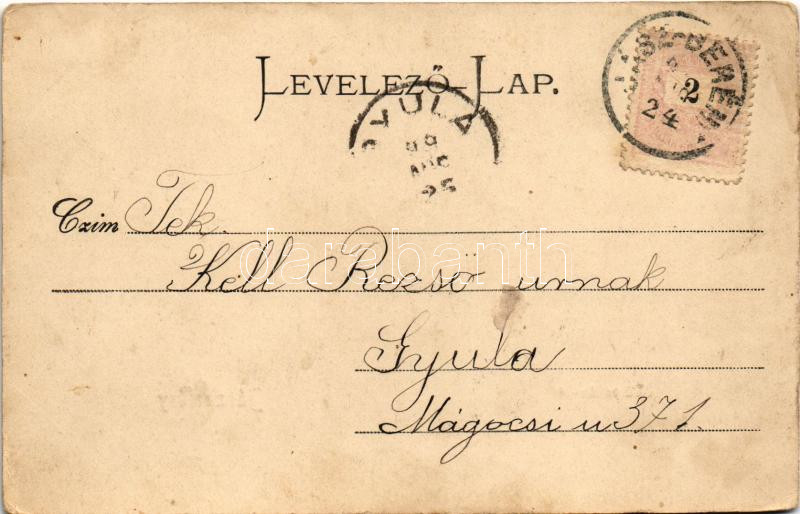 LEVELEZŐ-LAP.
JÁSZ-BERÉNY
24
2
GYULA
99
AUG
25
Czim Tek.
Kell Rezső urnak
darabanth
Gyula
Mágocsi u 371.